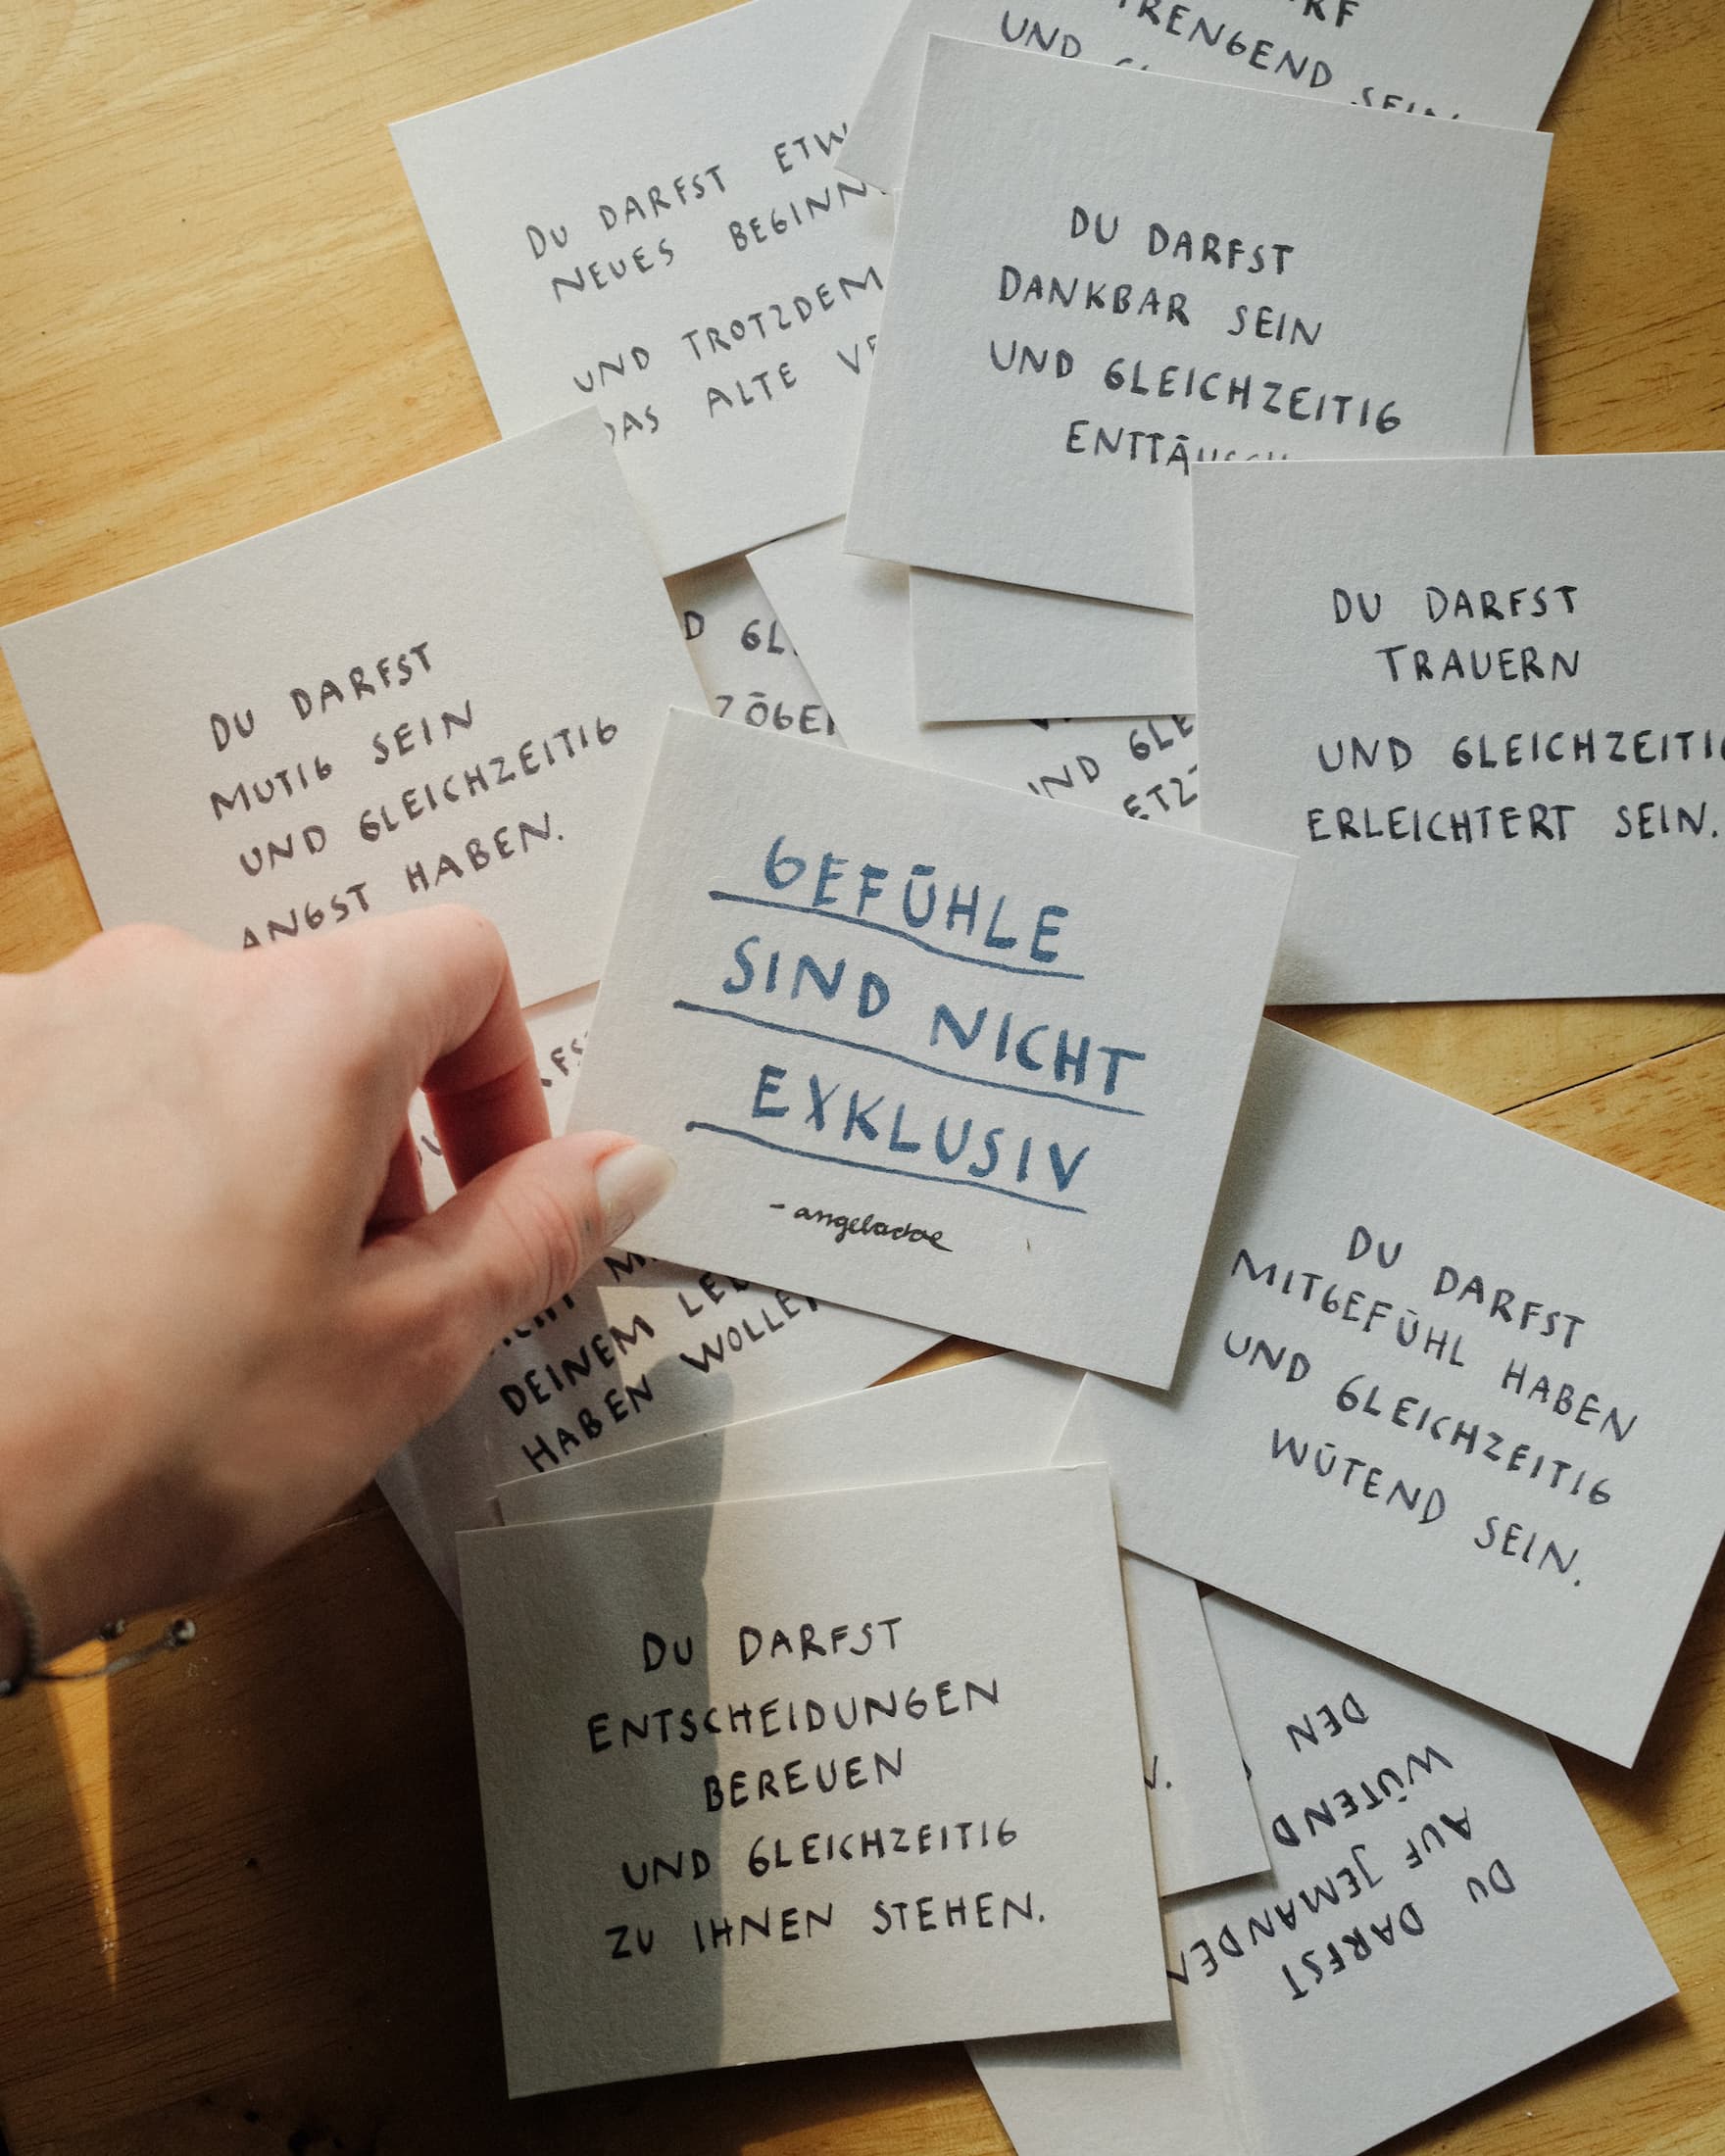 TRENGEND SEIN
UND
DU DARFST
NEUES
UND TROTZDEM
ALTE
DU DARFST
DANKBAR SEIN
UND GLEICHZEITIG
DU DARFST
MUTIG SEIN
UND GLEICHZEITIG
ANGST HABEN.
DU DARFST
TRAUERN
UND GLEICHZEITIG
ERLEICHTERT SEIN.
GEFÜHLE
SIND NICHT
EXKLUSIV
- angeladoe
DEINEM
HABEN
DU DARFST
MITGEFÜHL HABEN
UND GLEICHZEITIG
WÜTEND SEIN.
DU DARFST
ENTSCHEIDUNGEN
BEREUEN
UND GLEICHZEITIG
ZU IHNEN STEHEN.
DU DARFST
AUF JEMANDEN
WÜTEND
DEN